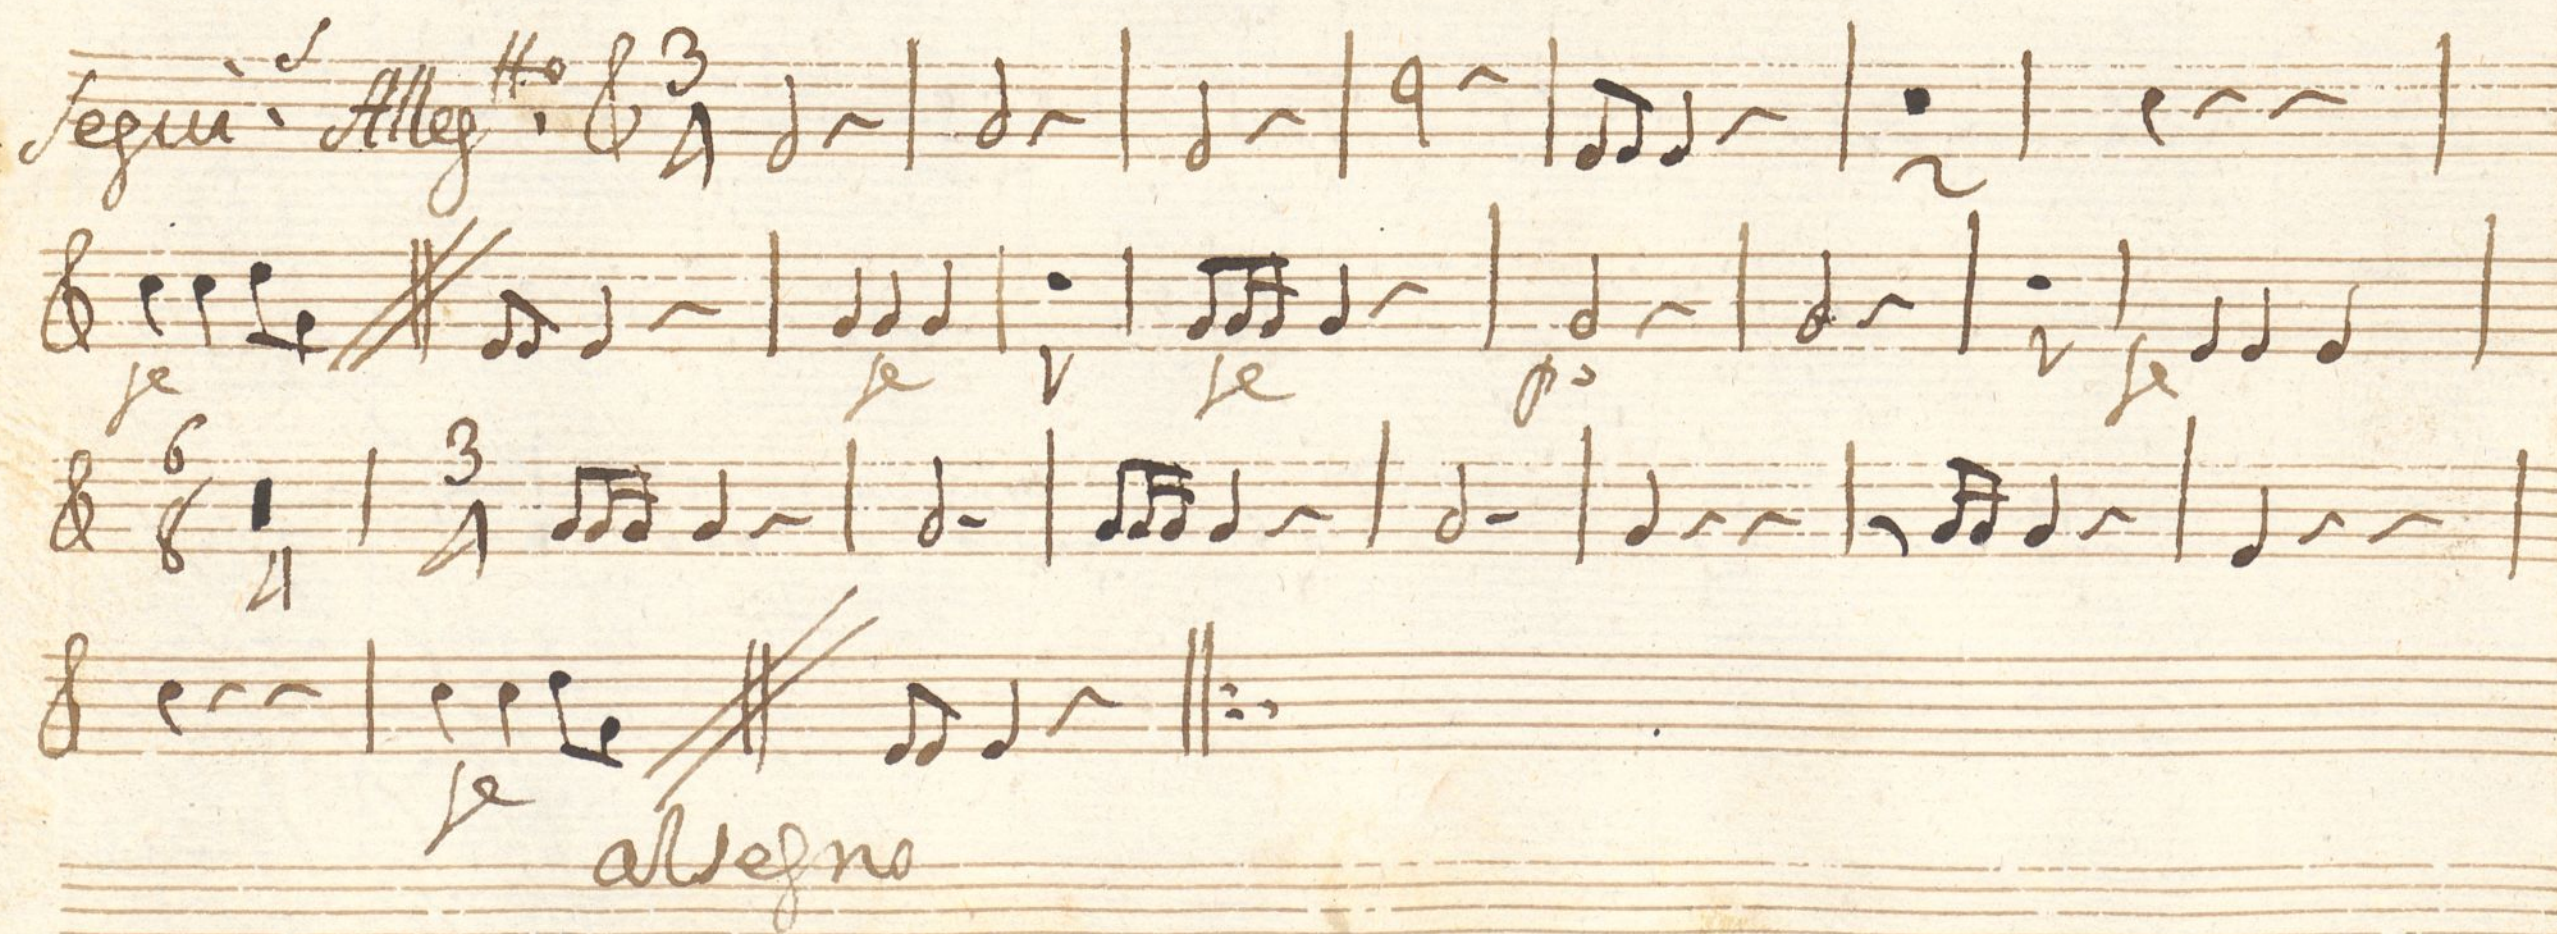 Segui.s Alleg.tto 3 4 2
fe fe 1 fe p.o 1 fe
6 8 4 3 4
fe
al segno